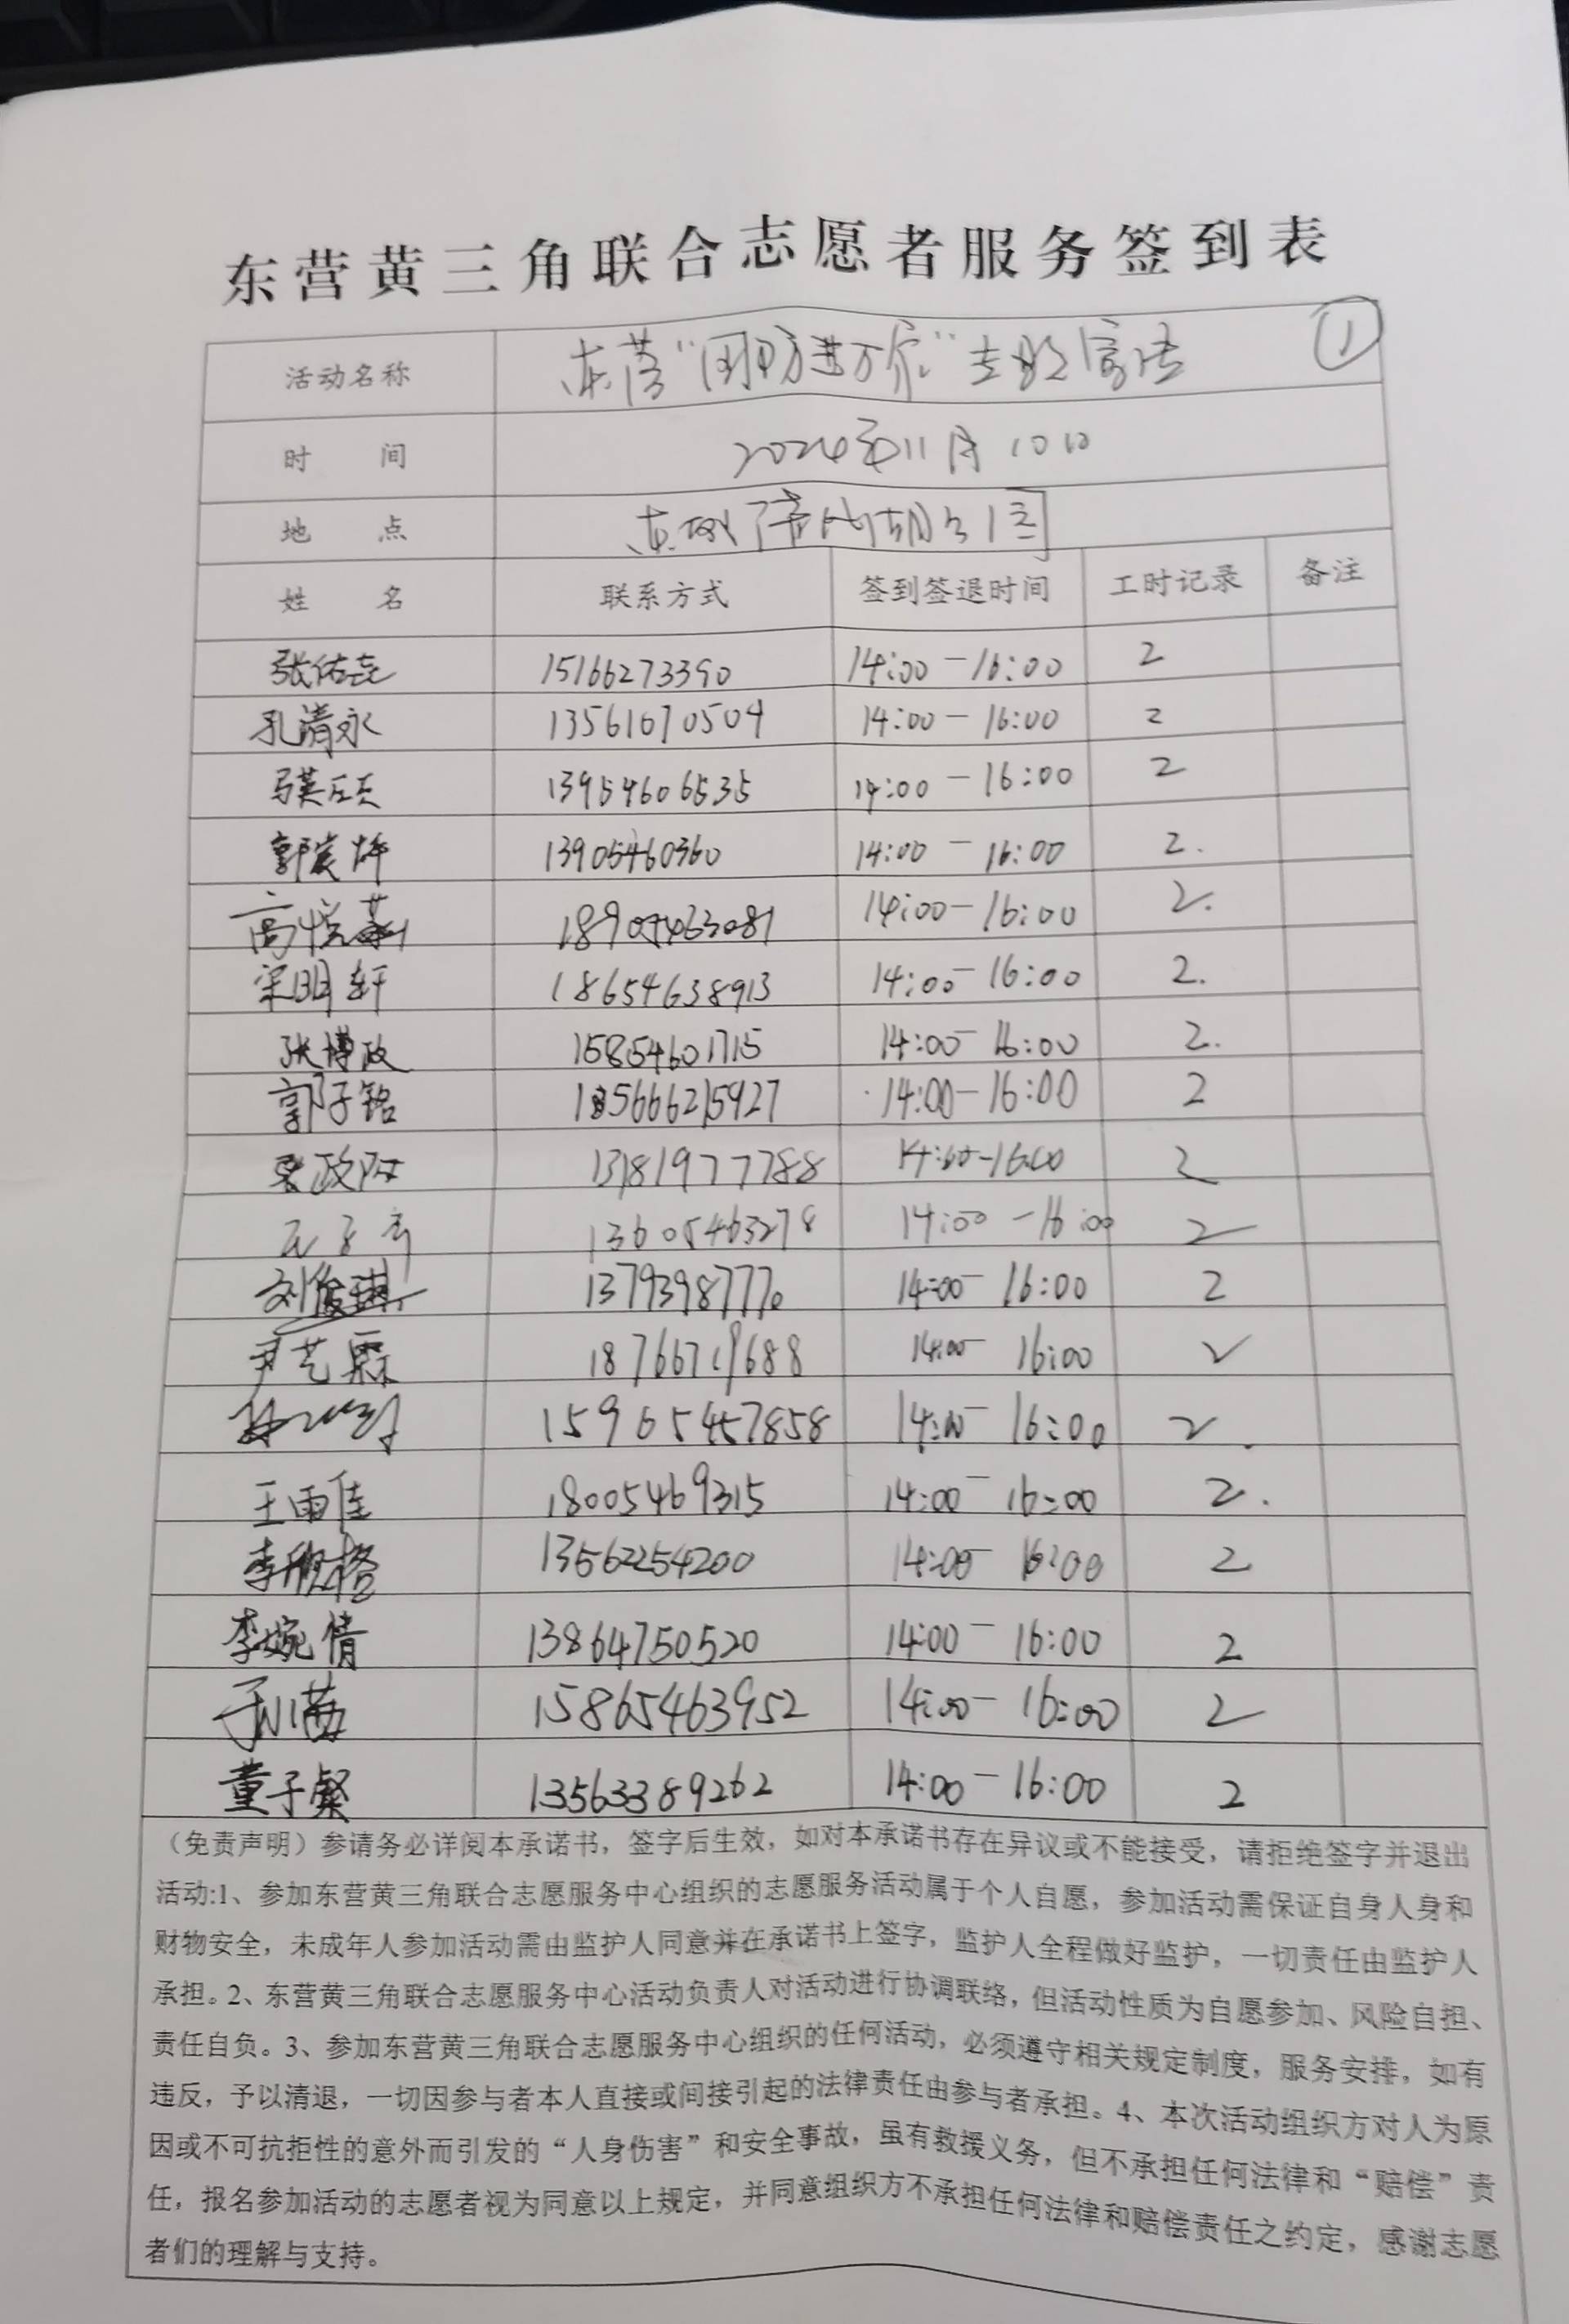 东营黄三角联合志愿者服务签到表
活动名称 东营“国防进万家”主题宣传 ①
时 间 2024年11月10日
地 点
姓 名 联系方式 签到签退时间 工时记录 备注
张佑 15166273390 14:00-16:00 2
孔清永 13561670504 14:00-16:00 2
13954606535 14:00-16:00 2
郭 13905460360 14:00-16:00 2.
高悦 14:00-16:00 2.
宋明轩 18654638913 14:00-16:00 2.
张博政 15854601715 14:00-16:00 2.
郭子铭 14:00-16:00 2
张政阳 13181977788 14:00-16:00 2
13605463278 14:00-16:00 2
刘俊琪 14:00-16:00 2
尹艺霖 14:00-16:00 2
15965457858 14:00-16:00 2
王雨佳 18005469315 14:00-16:00 2.
李欣格 13562254200 14:00-16:00 2
李婉情 13864750520 14:00-16:00 2
于 15865463952 14:00-16:00 2
董子粲 13563389262 14:00-16:00 2
（免责声明）参请务必详阅本承诺书，签字后生效，如对本承诺书存在异议或不能接受，请拒绝签字并退出
活动:1、参加东营黄三角联合志愿服务中心组织的志愿服务活动属于个人自愿，参加活动需保证自身人身和
财物安全，未成年人参加活动需由监护人同意并在承诺书上签字，监护人全程做好监护，一切责任由监护人
承担。2、东营黄三角联合志愿服务中心活动负责人对活动进行协调联络，但活动性质为自愿参加、风险自担、
责任自负。3、参加东营黄三角联合志愿服务中心组织的任何活动，必须遵守相关规定制度，服务安排，如有
违反，予以清退，一切因参与者本人直接或间接引起的法律责任由参与者承担。4、本次活动组织方对人为原
因或不可抗拒性的意外而引发的“人身伤害”和安全事故，虽有救援义务，但不承担任何法律和“赔偿”责
任，报名参加活动的志愿者视为同意以上规定，并同意组织方不承担任何法律和赔偿责任之约定，感谢志愿
者们的理解与支持。